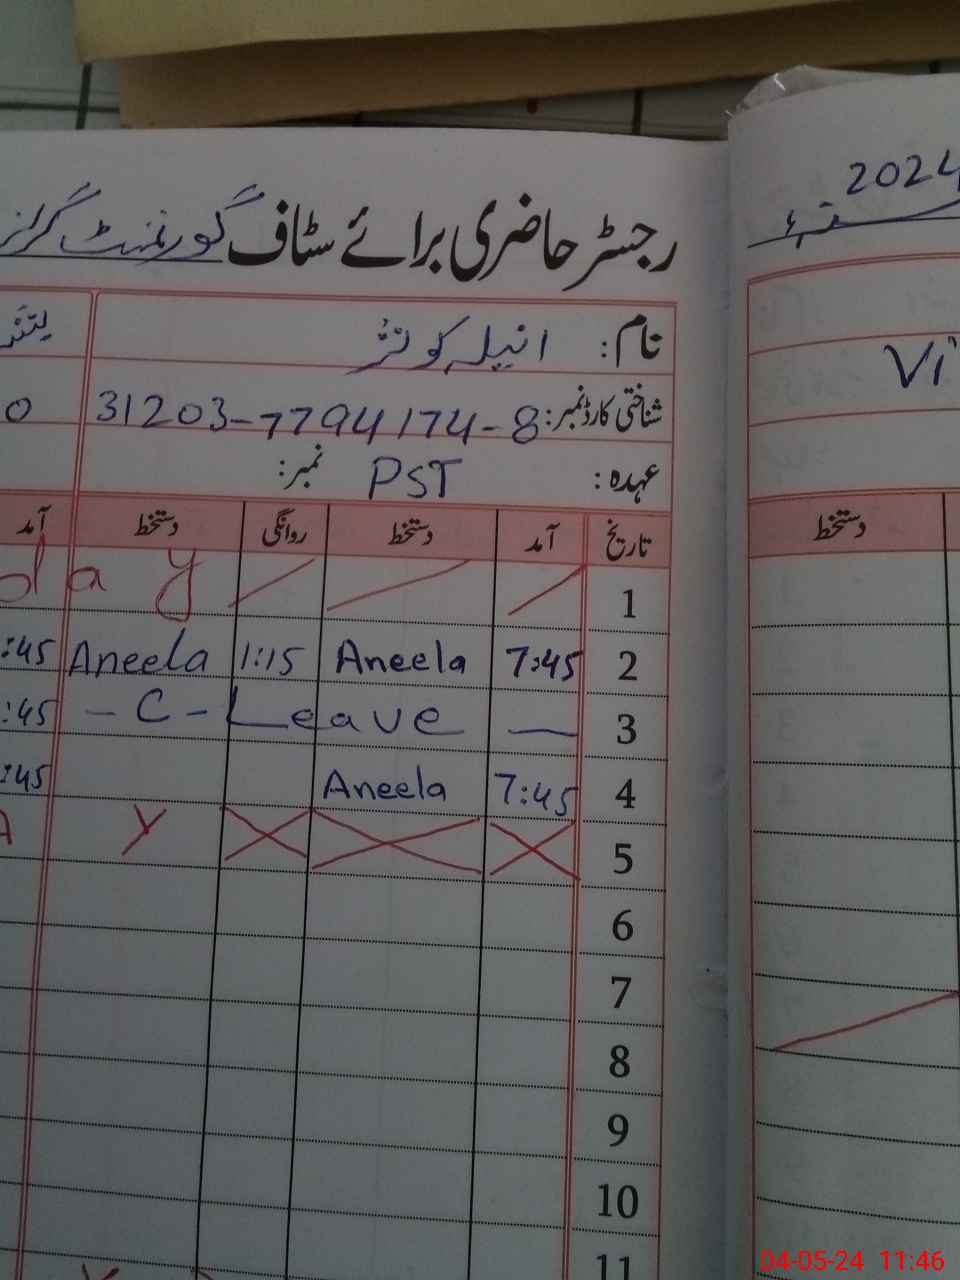 2024
رجسٹر حاضری برائے سٹاف گورنمنٹ گرلز
نام: انیلہ کوثر
Vi
شناختی کارڈ نمبر: 31203-7794174-8
0
عہدہ: PST نمبر:
تاریخ آمد دستخط روانگی دستخط آمد
دستخط
1 day
2 7:45 Aneela 1:15 Aneela :45
3 — C - Leave :45
4 7:45 Aneela :45
5 Y A
6
7
8
9
10
11
04-05-24 11:46